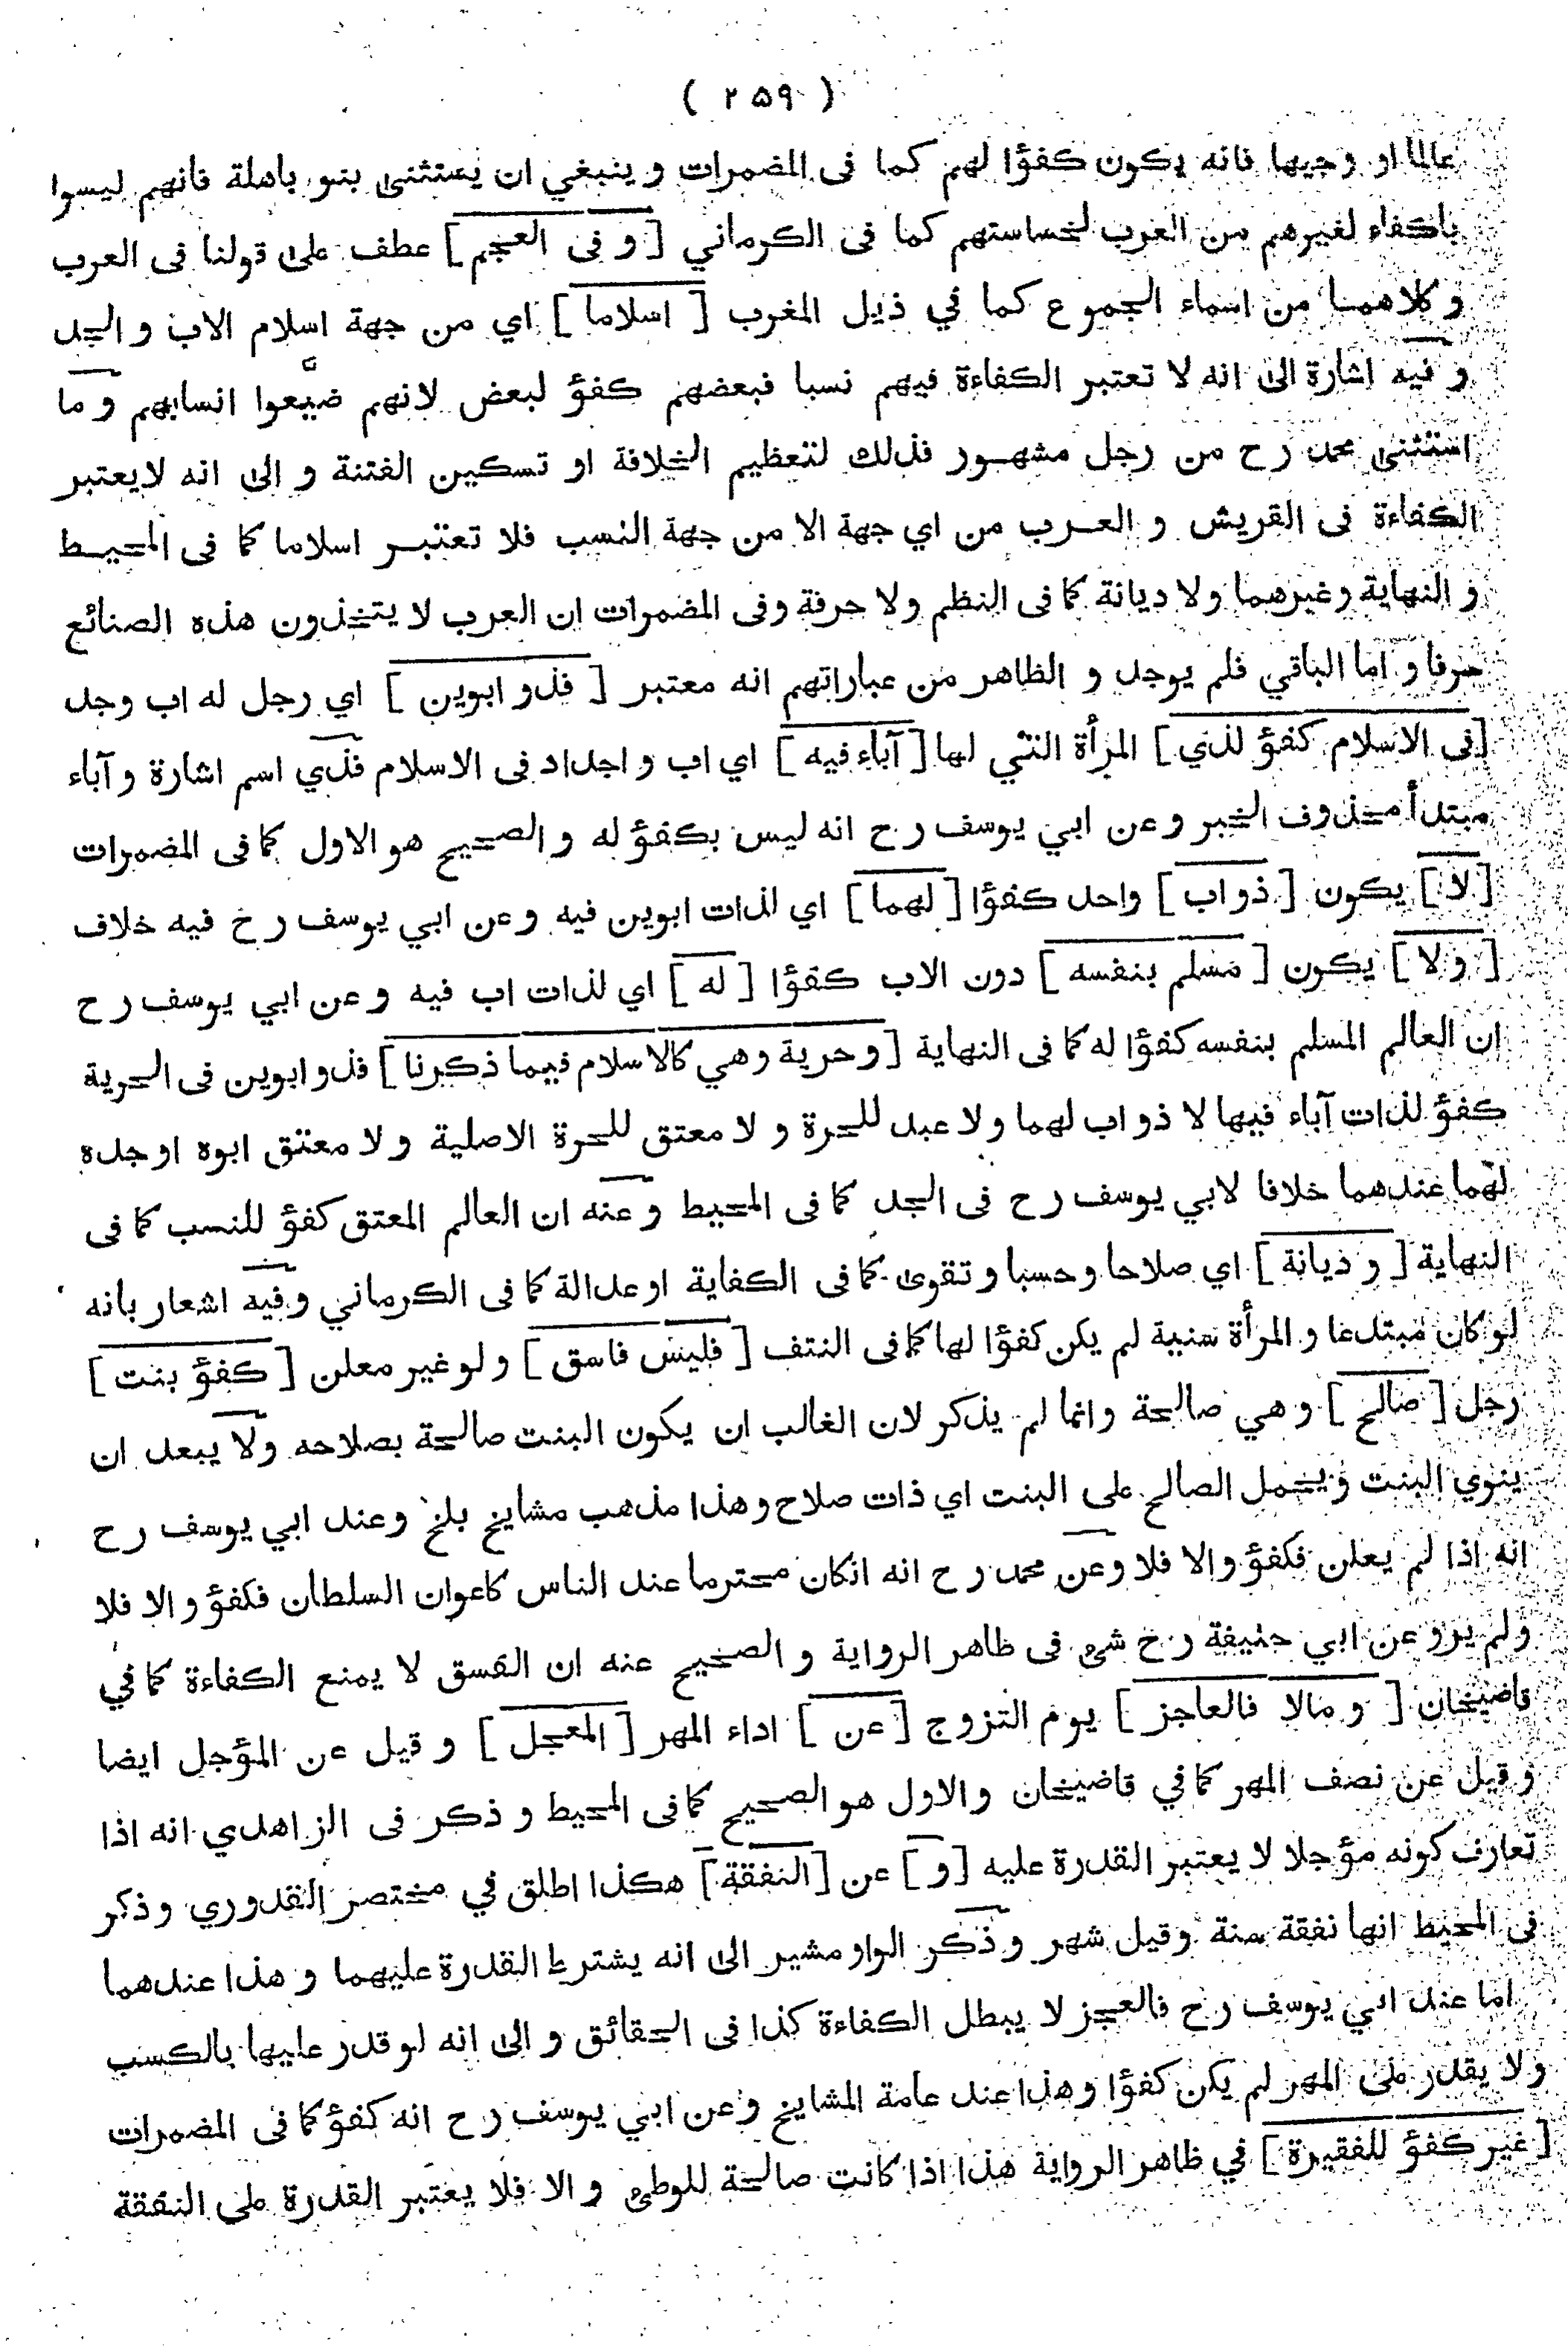 ( ٢٥٩ )
عالما او وجيها فانه يكون كفؤا لهم كما فى المضمرات و ينبغي ان يستثنى بنو باهلة فانهم ليسوا
باكفاء لغيرهم من العرب لخساستهم كما فى الكرماني [ و فى العجم ] عطف على قولنا فى العرب
و كلاهما من اسماء الجموع كما في ذيل المغرب [ اسلاما ] اي من جهة اسلام الاب و الجد
و فيه اشارة الى انه لا تعتبر الكفاءة فيهم نسبا فبعضهم كفؤ لبعض لانهم ضيّعوا انسابهم و ما
استثنى محمد رح من رجل مشهور فذلك لتعظيم الخلافة او تسكين الفتنة و الى انه لايعتبر
الكفاءة فى القريش و العرب من اي جهة الا من جهة النسب فلا تعتبر اسلاما كما فى المحيط
و النهاية وغيرهما ولا ديانة كما فى النظم ولا حرفة وفى المضمرات ان العرب لا يتخذون هذه الصنائع
حرفا و اما الباقي فلم يوجد و الظاهر من عباراتهم انه معتبر [ فذو ابوين ] اي رجل له اب وجد
[ فى الاسلام كفؤ لذي ] المرأة التي لها [ آباء فيه ] اي اب و اجداد فى الاسلام فذي اسم اشارة و آباء
مبتدأ محذوف الخبر وعن ابي يوسف رح انه ليس بكفؤ له و الصحيح هو الاول كما فى المضمرات
[ لا ] يكون [ ذو اب ] واحد كفؤا [ لهما ] اي لذات ابوين فيه وعن ابي يوسف رح فيه خلاف
[ ولا ] يكون [ مسلم بنفسه ] دون الاب كفؤا [ له ] اي لذات اب فيه وعن ابي يوسف رح
ان العالم المسلم بنفسه كفؤا له كما فى النهاية [ وحرية وهي كالاسلام فيما ذكرنا ] فذو ابوين فى الحرية
كفؤ لذات آباء فيها لا ذو اب لهما ولا عبد للحرة و لا معتق للحرة الاصلية و لا معتق ابوه اوجده
لهما عندهما خلافا لابي يوسف رح فى الجد كما فى المحيط وعنه ان العالم المعتق كفؤ للنسب كما فى
النهاية [ و ديانة ] اي صلاحا وحسبا وتقوى كما فى الكفاية او عدالة كما فى الكرماني وفيه اشعار بانه
لو كان مبتدعا و المرأة سنية لم يكن كفؤا لها كما فى النتف [ فليس فاسق ] ولو غير معلن [ كفؤ بنت ]
رجل [ صالح ] وهي صالحة وانما لم يذكر لان الغالب ان يكون البنت صالحة بصلاحه ولا يبعد ان
ينوي البنت ويحمل الصالح على البنت اي ذات صلاح وهذا مذهب مشايخ بلخ وعند ابي يوسف رح
انه اذا لم يعلن فكفؤ والا فلا وعن محمد رح انه انكان محترما عند الناس كاعوان السلطان فكفؤ والا فلا
ولم يرو عن ابي حنيفة رح شئ فى ظاهر الرواية و الصحيح عنه ان الفسق لا يمنع الكفاءة كما في
قاضيخان [ و مالا فالعاجز ] يوم التزوج [ عن ] اداء المهر [ المعجل ] و قيل عن المؤجل ايضا
و قيل عن نصف المهر كما في قاضيخان والاول هو الصحيح كما فى المحيط و ذكر فى الزاهدي انه اذا
تعارف كونه مؤجلا لا يعتبر القدرة عليه [ و ] عن [ النفقة ] هكذا اطلق في مختصر القدوري وذكر
فى المحيط انها نفقة سنة وقيل شهر وذكر الواو مشير الى انه يشترط القدرة عليهما و هذا عندهما
اما عند ابي يوسف رح فالعجز لا يبطل الكفاءة كذا فى الحقائق و الى انه لو قدر عليها بالكسب
ولا يقدر على المهر لم يكن كفؤا وهذا عند عامة المشايخ وعن ابي يوسف رح انه كفؤ كما فى المضمرات
[ غير كفؤ للفقيرة ] في ظاهر الرواية هذا اذا كانت صالحة للوطئ و الا فلا يعتبر القدرة على النفقة